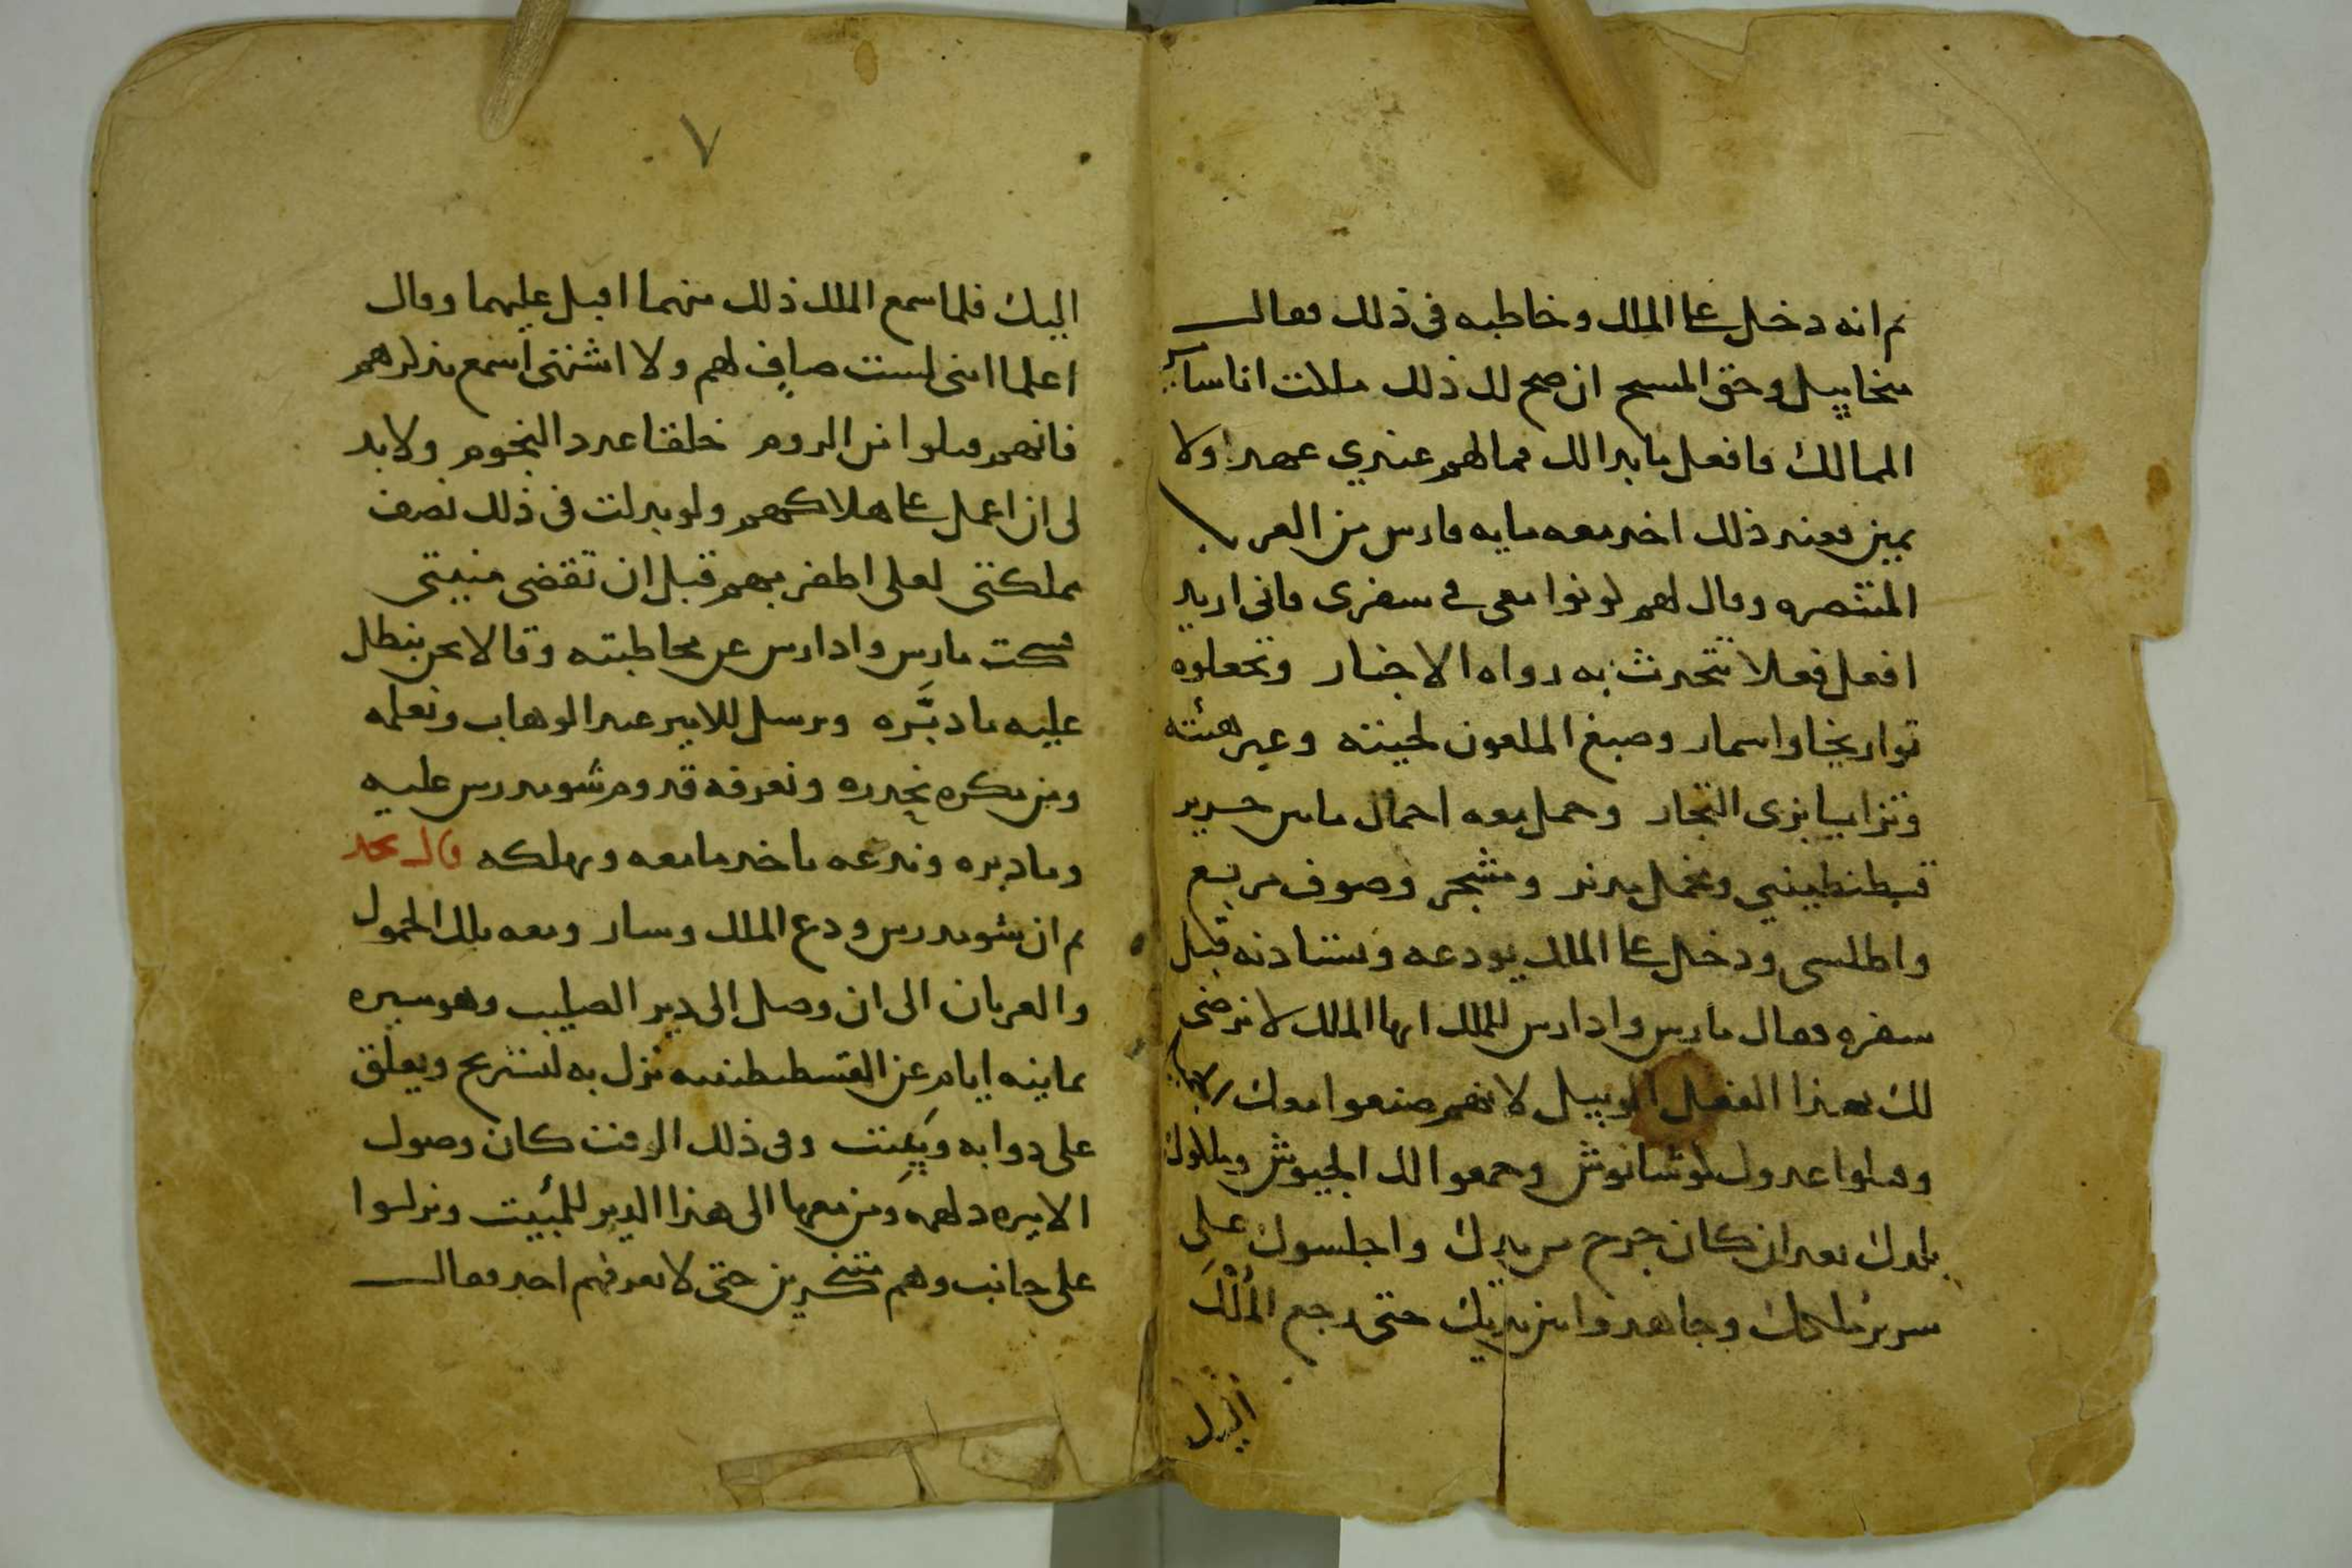 ثم انه دخل على الملك وخاطبه في ذلك فقال
ميخاييل وحق المسيح ان صح لك ذلك ملكت اناساير
الممالك فافعل ما بدا لك فما لهم عندي عهدا ولا
يمين فعند ذلك اخد معه مايه فارس من العرب
المتنصره وقال لهم كونوا معي في سفري فاني اريد
افعل فعلا تتحدث به رواه الاخبار وتجعلوه
تواريخا واسمار وصبغ الملعون لحيته وغير هيئته
وتزايا بزي التجار وحمل معه احمال ماس حرير
قسطنطيني ومخمل مدنر ومشجر وصوف مربع
واطلسي ودخل على الملك يودعه ويستادنه قبل
سفره فقال مارس وادارس للملك ايها الملك لا نرضى
لك بهذا الفعل الوبيل لانهم صنعوا معك
وقتلوا عدوك لوشانوش وجمعوا لك الجيوش وملكوك
بلادك بعد ان كان خرج من يدك واجلسوك على
سرير ملكك وجاهدوا بين يديك حتى رجع الملك
اليك
٧
اليك فلما سمع الملك ذلك منهما اقبل عليهما وقال
اعلما انني لست صاف لهم ولا اشتهي اسمع بذكرهم
فانهم قتلوا من الروم خلقا عدد النجوم ولا بد
لي ان اعمل على هلاكهم ولو بدلت في ذلك نصف
مملكتي لعلي اظفر بهم قبل ان تقضى منيتي
فسكت مارس وادارس عن مخاطبته وقالا نحن نبطل
عليه ما دبَّره ونرسل للامير عبد الوهاب ونعلمه
ومن مكره نحدره ونعرفه قدوم شومدرس عليه
وما دبره وندعه ياخد ما معه ويهلكه قال نجد
ثم ان شومدرس ودع الملك وسار ومعه تلك الحمول
والعربان الى ان وصل الى دير الصليب وهو مسيره
ثمانية ايام عن القسطنطينيه نزل به ليستريح ويعلق
على دوابه ويبيت وفي ذلك الوقت كان وصول
الاميره دلهمه ومن معها الى هذا الدير للمبيت ونزلوا
على جانب وهم متنكرين حتى لا يعرفهم احد فقال